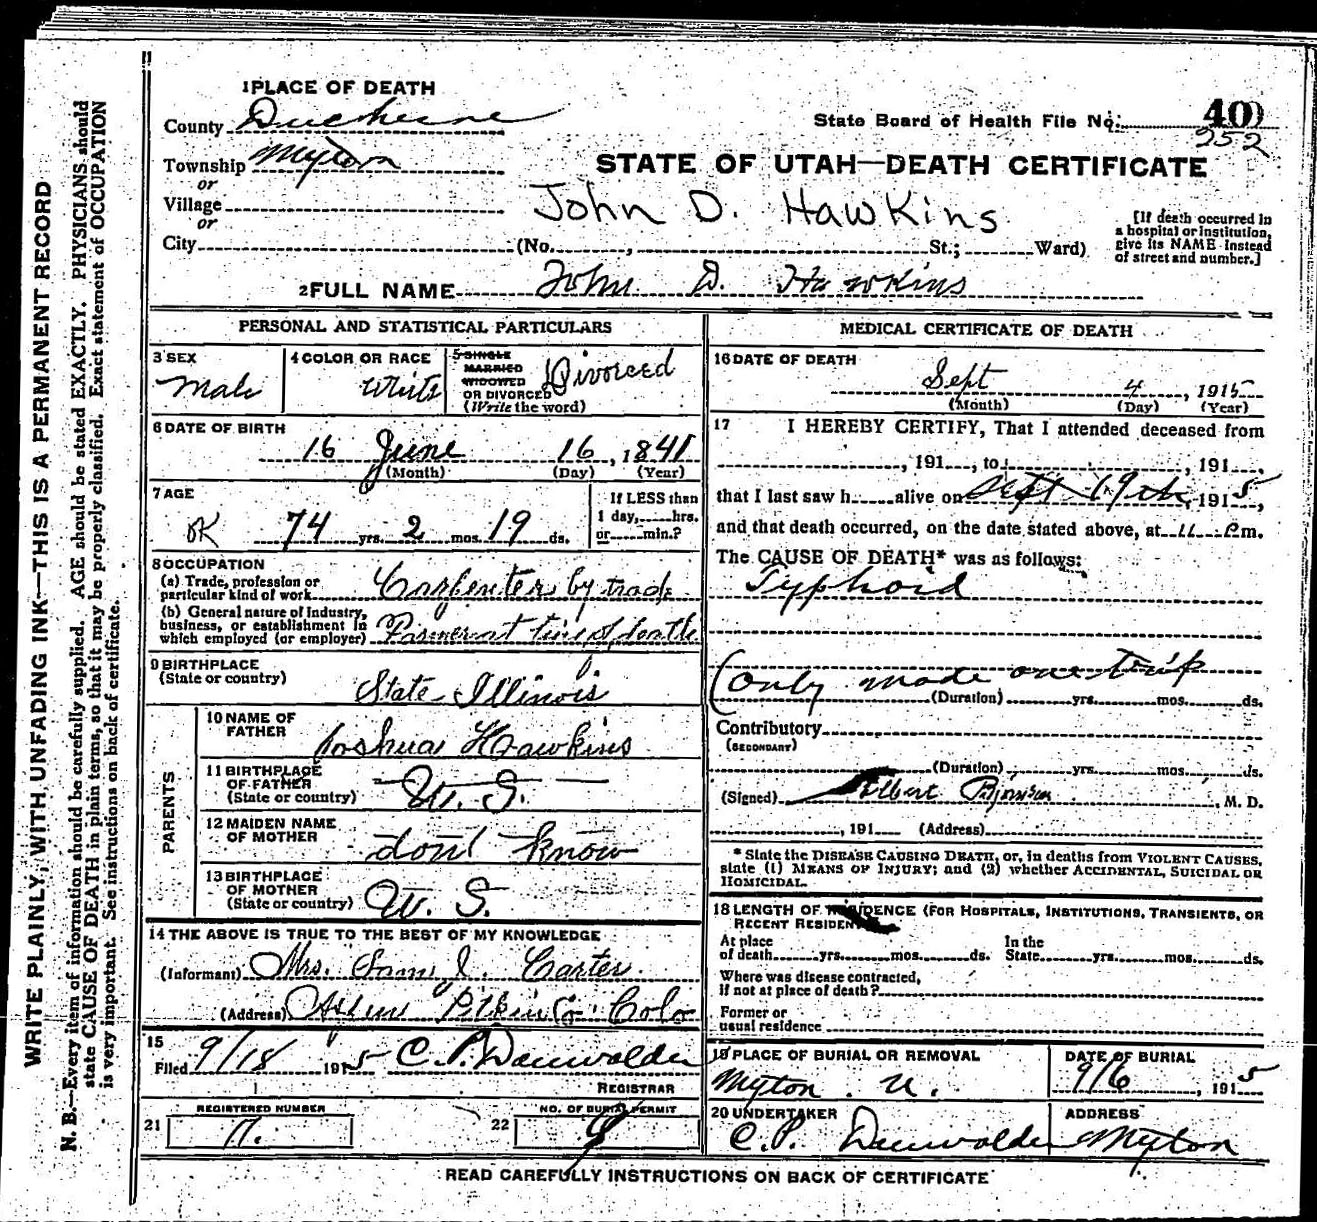 1 PLACE OF DEATH
County Duchesne
State Board of Health File No. 40
252
Township Myton
or
STATE OF UTAH—DEATH CERTIFICATE
Village
or
John D. Hawkins
City (No. , St.; Ward)
[If death occurred in
a hospital or institution,
give its NAME instead
of street and number.]
2 FULL NAME John D. Hawkins
PERSONAL AND STATISTICAL PARTICULARS
3 SEX
Male
4 COLOR OR RACE
White
5 SINGLE
MARRIED
WIDOWED
OR DIVORCED
(Write the word)
Divorced
6 DATE OF BIRTH
16 June 16, 1841
(Month) (Day) (Year)
7 AGE
OK 74 yrs. 2 mos. 19 ds.
If LESS than
1 day, hrs.
or min.?
8 OCCUPATION
(a) Trade, profession or
particular kind of work Carpenter by trade
(b) General nature of Industry,
business, or establishment in
which employed (or employer) Farmer at time of death
9 BIRTHPLACE
(State or country)
State Illinois
PARENTS
10 NAME OF
FATHER Joshua Hawkins
11 BIRTHPLACE
OF FATHER
(State or country) U. S.
12 MAIDEN NAME
OF MOTHER dont know
13 BIRTHPLACE
OF MOTHER
(State or country) U. S.
14 THE ABOVE IS TRUE TO THE BEST OF MY KNOWLEDGE
(Informant) Mrs. J. Carter
(Address) Pitkin Co. Colo
15
Filed 9/18 1915 C. P. Dannwalder
REGISTRAR
REGISTERED NUMBER
21
NO. OF BURIAL PERMIT
22
MEDICAL CERTIFICATE OF DEATH
16 DATE OF DEATH
Sept 4, 1915
(Month) (Day) (Year)
17 I HEREBY CERTIFY, That I attended deceased from
, 191 , to , 191 ,
that I last saw h alive on Sept 19th, 1915,
and that death occurred, on the date stated above, at 11 P m.
The CAUSE OF DEATH* was as follows:
Typhoid
(only made one trip
(Duration) yrs. mos. ds.
Contributory
(SECONDARY)
(Duration) yrs. mos. ds.
(Signed) Albert , M. D.
, 191 (Address)
* State the DISEASE CAUSING DEATH, or, in deaths from VIOLENT CAUSES,
state (1) MEANS OF INJURY; and (2) whether ACCIDENTAL, SUICIDAL OR
HOMICIDAL.
18 LENGTH OF RESIDENCE (FOR HOSPITALS, INSTITUTIONS, TRANSIENTS, OR
RECENT RESIDENTS
At place
of death yrs. mos. ds.
In the
State yrs. mos. ds.
Where was disease contracted,
if not at place of death?
Former or
usual residence
19 PLACE OF BURIAL OR REMOVAL
Myton U.
DATE OF BURIAL
9/6, 1915
20 UNDERTAKER
C. P. Dannwalder
ADDRESS
Myton
READ CAREFULLY INSTRUCTIONS ON BACK OF CERTIFICATE
WRITE PLAINLY, WITH UNFADING INK—THIS IS A PERMANENT RECORD
N. B.—Every item of information should be carefully supplied. AGE should be stated EXACTLY. PHYSICIANS should
state CAUSE OF DEATH in plain terms, so that it may be properly classified. Exact statement of OCCUPATION
is very important. See instructions on back of certificate.